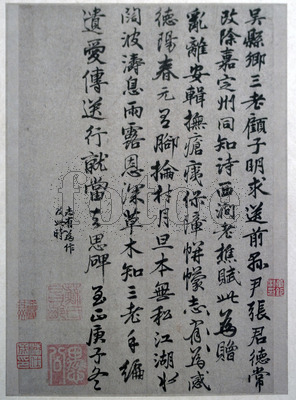 吳縣鄉三老顧子明求送前縣尹張君德常
改除嘉定州同知詩西澗老樵賦此為貽
亂離安輯撫瘡痍保障帡幪志有為感
德陽春元有腳掄材月旦本無私江湖水
闊波濤息雨露恩深草木知三老手編
遺愛傳送行就當去思碑至正庚子冬
志有為作
fotoe